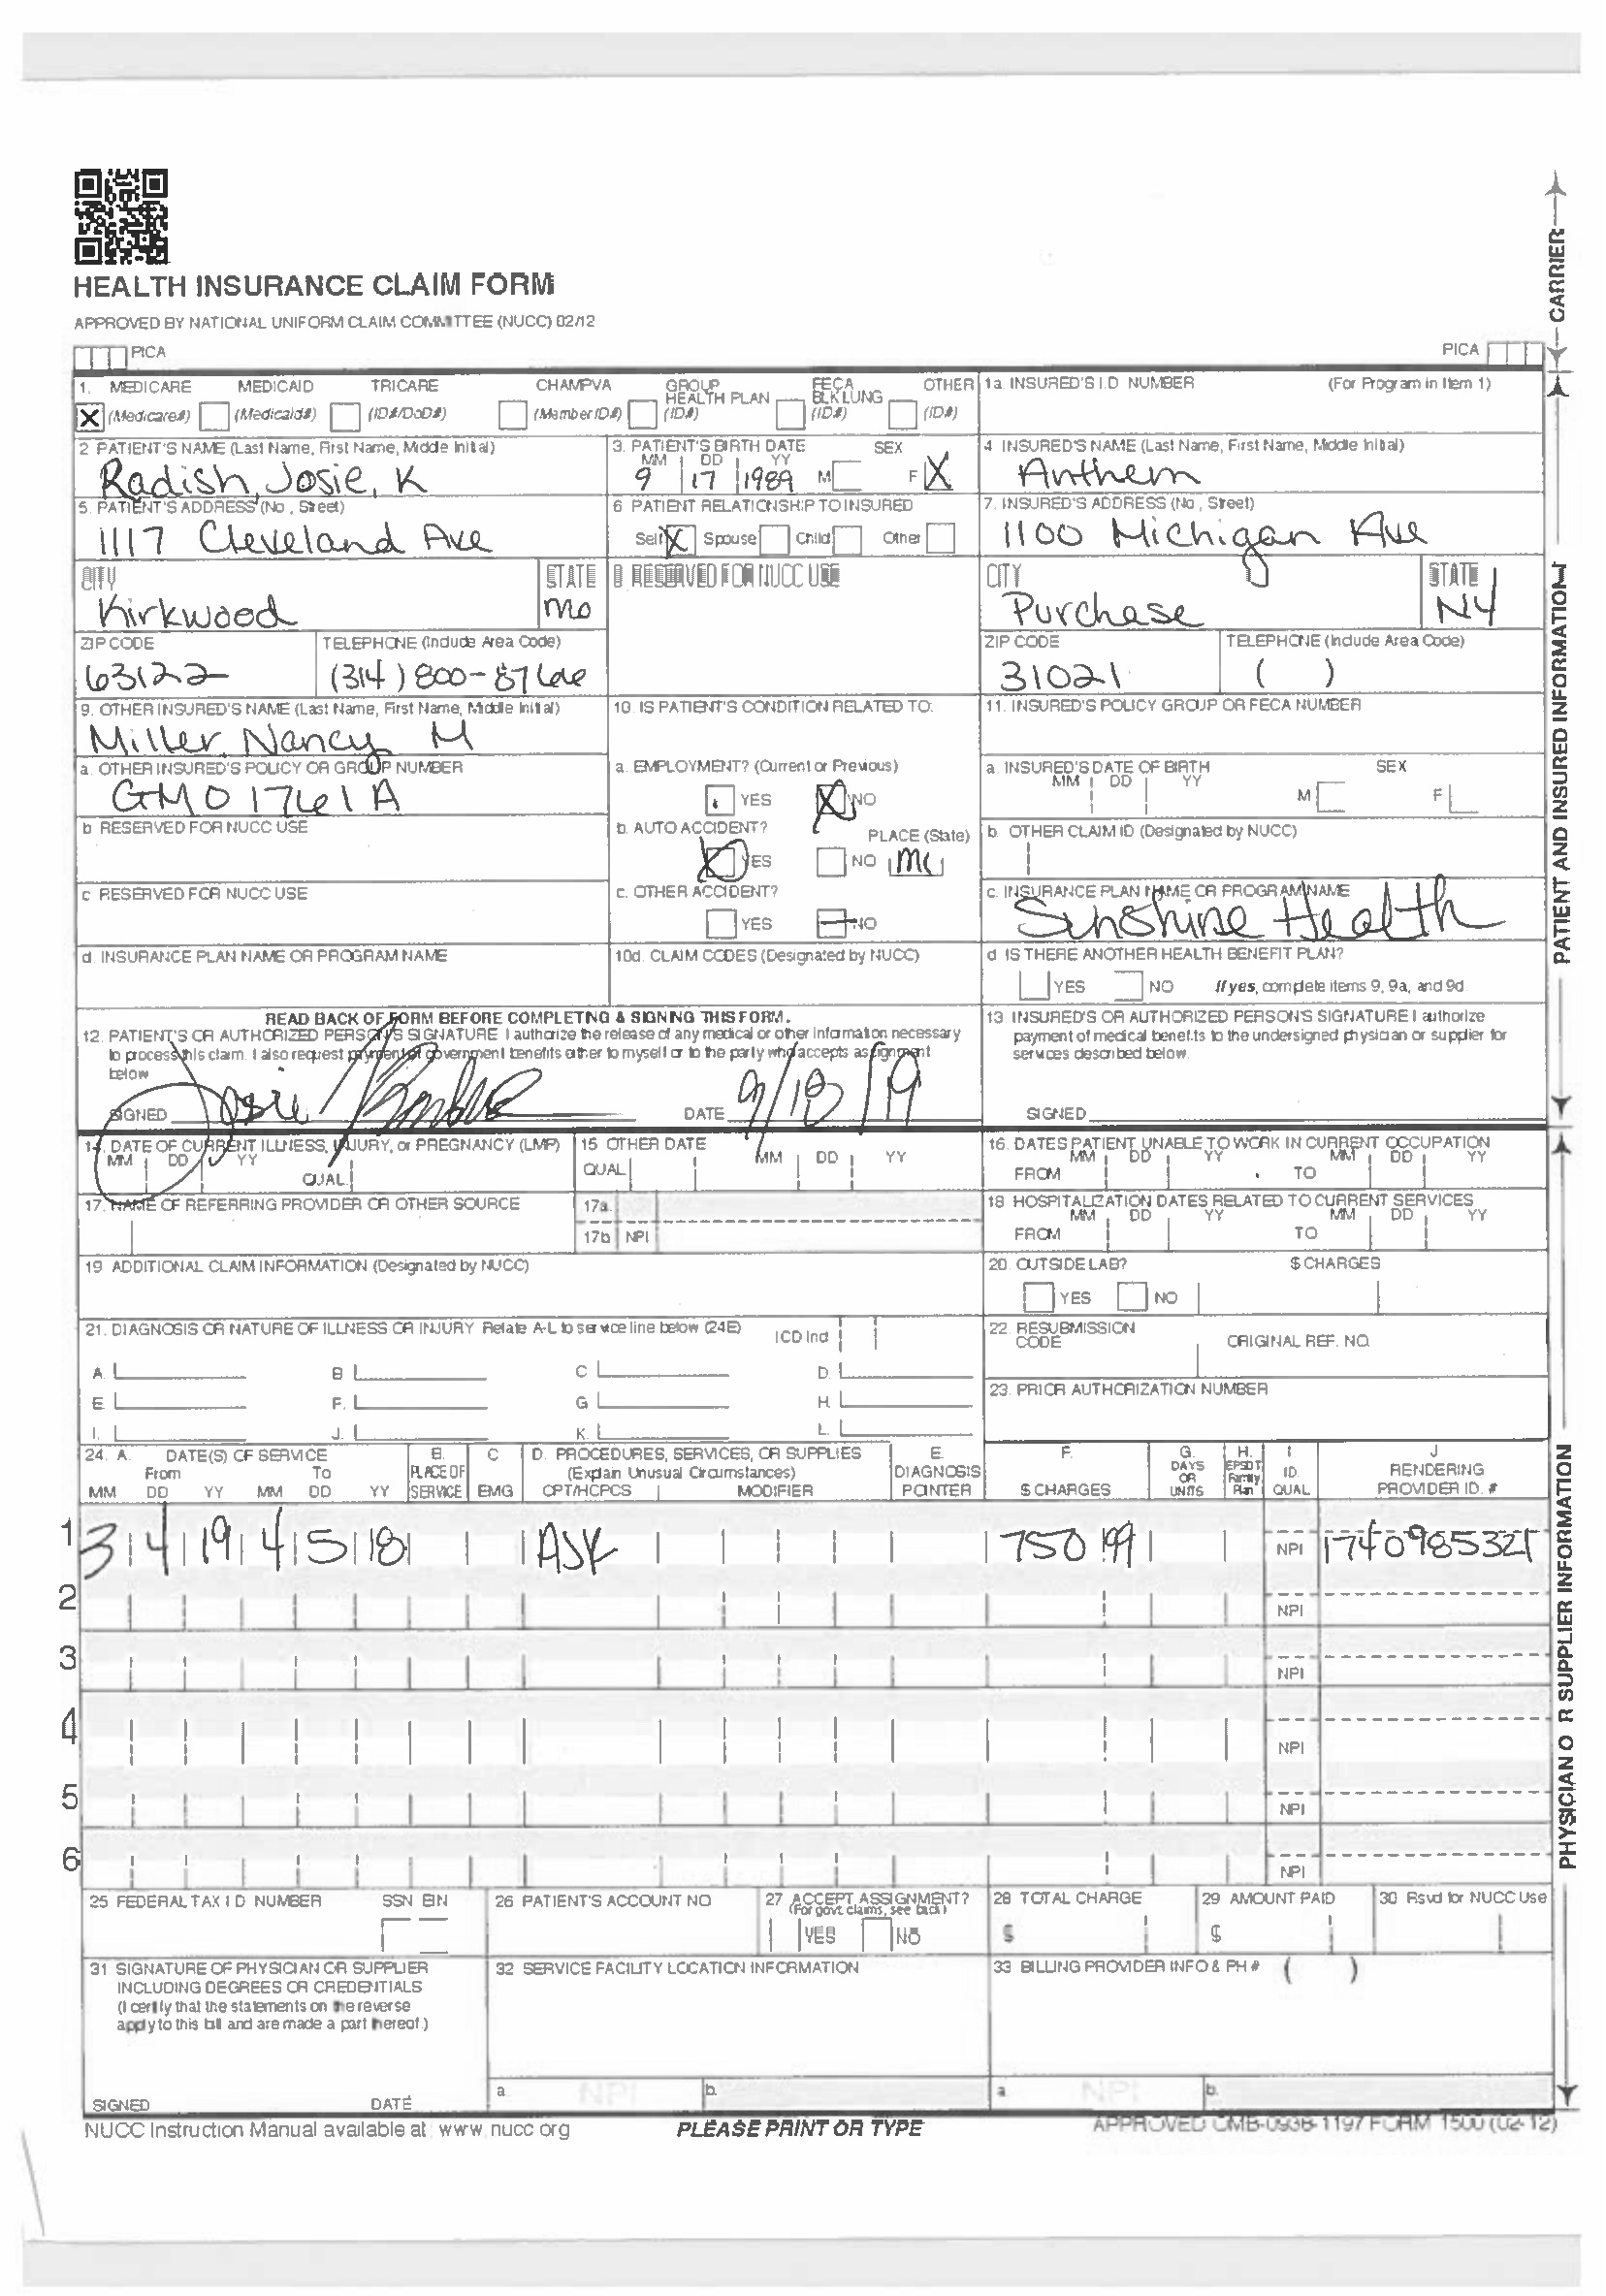 HEALTH INSURANCE CLAIM FORM
APPROVED BY NATIONAL UNIFORM CLAIM COMMITTEE (NUCC) 02/12
PICA PICA
CARRIER
1. MEDICARE MEDICAID TRICARE CHAMPVA GROUP HEALTH PLAN FECA BLK LUNG OTHER
X (Medicare#) (Medicaid#) (ID#/DoD#) (Member ID#) (ID#) (ID#) (ID#)
1a. INSURED'S I.D NUMBER (For Program in Item 1)
2 PATIENT'S NAME (Last Name, First Name, Middle Initial)
Radish, Josie, K
3. PATIENT'S BIRTH DATE SEX
MM DD YY
9 17 1989 M F X
4 INSURED'S NAME (Last Name, First Name, Middle Initial)
Anthem
5. PATIENT'S ADDRESS (No, Street)
1117 Cleveland Ave
6 PATIENT RELATIONSHIP TO INSURED
Self X Spouse Child Other
7. INSURED'S ADDRESS (No, Street)
1100 Michigan Ave
CITY STATE
Kirkwood MO
8 RESERVED FOR NUCC USE
CITY STATE
Purchase NY
ZIP CODE TELEPHONE (Include Area Code)
63122 (314) 800-8766
ZIP CODE TELEPHONE (Include Area Code)
31021 ( )
9. OTHER INSURED'S NAME (Last Name, First Name, Middle Initial)
Miller, Nancy M
10. IS PATIENT'S CONDITION RELATED TO:
11. INSURED'S POLICY GROUP OR FECA NUMBER
a. OTHER INSURED'S POLICY OR GROUP NUMBER
GM01761A
a. EMPLOYMENT? (Current or Previous)
YES X NO
a. INSURED'S DATE OF BIRTH SEX
MM DD YY M F
b. RESERVED FOR NUCC USE
b. AUTO ACCIDENT? PLACE (State)
X YES NO
b. OTHER CLAIM ID (Designated by NUCC)
c. RESERVED FOR NUCC USE
c. OTHER ACCIDENT?
YES NO
c. INSURANCE PLAN NAME OR PROGRAM NAME
Sunshine Health
d. INSURANCE PLAN NAME OR PROGRAM NAME
10d. CLAIM CODES (Designated by NUCC)
d IS THERE ANOTHER HEALTH BENEFIT PLAN?
YES NO If yes, complete items 9, 9a, and 9d
PATIENT AND INSURED INFORMATION
READ BACK OF FORM BEFORE COMPLETING & SIGNING THIS FORM.
12. PATIENT'S OR AUTHORIZED PERSON'S SIGNATURE I authorize the release of any medical or other information necessary
to process this claim. I also request payment of government benefits either to myself or to the party who accepts assignment
below
SIGNED Josie DATE 9/18/19
13 INSURED'S OR AUTHORIZED PERSON'S SIGNATURE I authorize
payment of medical benefits to the undersigned physician or supplier for
services described below.
SIGNED
14. DATE OF CURRENT ILLNESS, INJURY, or PREGNANCY (LMP)
MM DD YY QUAL.
15 OTHER DATE
QUAL. MM DD YY
16. DATES PATIENT UNABLE TO WORK IN CURRENT OCCUPATION
MM DD YY MM DD YY
FROM TO
17. NAME OF REFERRING PROVIDER OR OTHER SOURCE
17a.
17b NPI
18 HOSPITALIZATION DATES RELATED TO CURRENT SERVICES
MM DD YY MM DD YY
FROM TO
19 ADDITIONAL CLAIM INFORMATION (Designated by NUCC)
20. OUTSIDE LAB? $ CHARGES
YES NO
21. DIAGNOSIS OR NATURE OF ILLNESS OR INJURY Relate A-L to service line below (24E) ICD Ind
A. B C D.
E. F. G H.
I. J. K. L.
22. RESUBMISSION CODE ORIGINAL REF. NO.
23. PRIOR AUTHORIZATION NUMBER
24. A. DATE(S) OF SERVICE B. C D. PROCEDURES, SERVICES, OR SUPPLIES E. F. G. H. I. J
From To PLACE OF (Explain Unusual Circumstances) DIAGNOSIS DAYS OR EPSDT Family ID. RENDERING
MM DD YY MM DD YY SERVICE EMG CPT/HCPCS MODIFIER POINTER $ CHARGES UNITS Plan QUAL. PROVIDER ID. #
1 3 4 19 4 5 18 ASK 750 99 NPI 1740985321
2 NPI
3 NPI
4 NPI
5 NPI
6 NPI
PHYSICIAN O R SUPPLIER INFORMATION
25 FEDERAL TAX I D NUMBER SSN EIN
26 PATIENT'S ACCOUNT NO
27 ACCEPT ASSIGNMENT?
(For govt. claims, see back)
YES NO
28 TOTAL CHARGE
$
29 AMOUNT PAID
$
30 Rsvd for NUCC Use
31 SIGNATURE OF PHYSICIAN OR SUPPLIER
INCLUDING DEGREES OR CREDENTIALS
(I certify that the statements on the reverse
apply to this bill and are made a part thereof.)
SIGNED DATE
32 SERVICE FACILITY LOCATION INFORMATION
a NPI b.
33 BILLING PROVIDER INFO & PH # ( )
a NPI b.
NUCC Instruction Manual available at: www.nucc.org PLEASE PRINT OR TYPE APPROVED OMB-0938-1197 FORM 1500 (02-12)